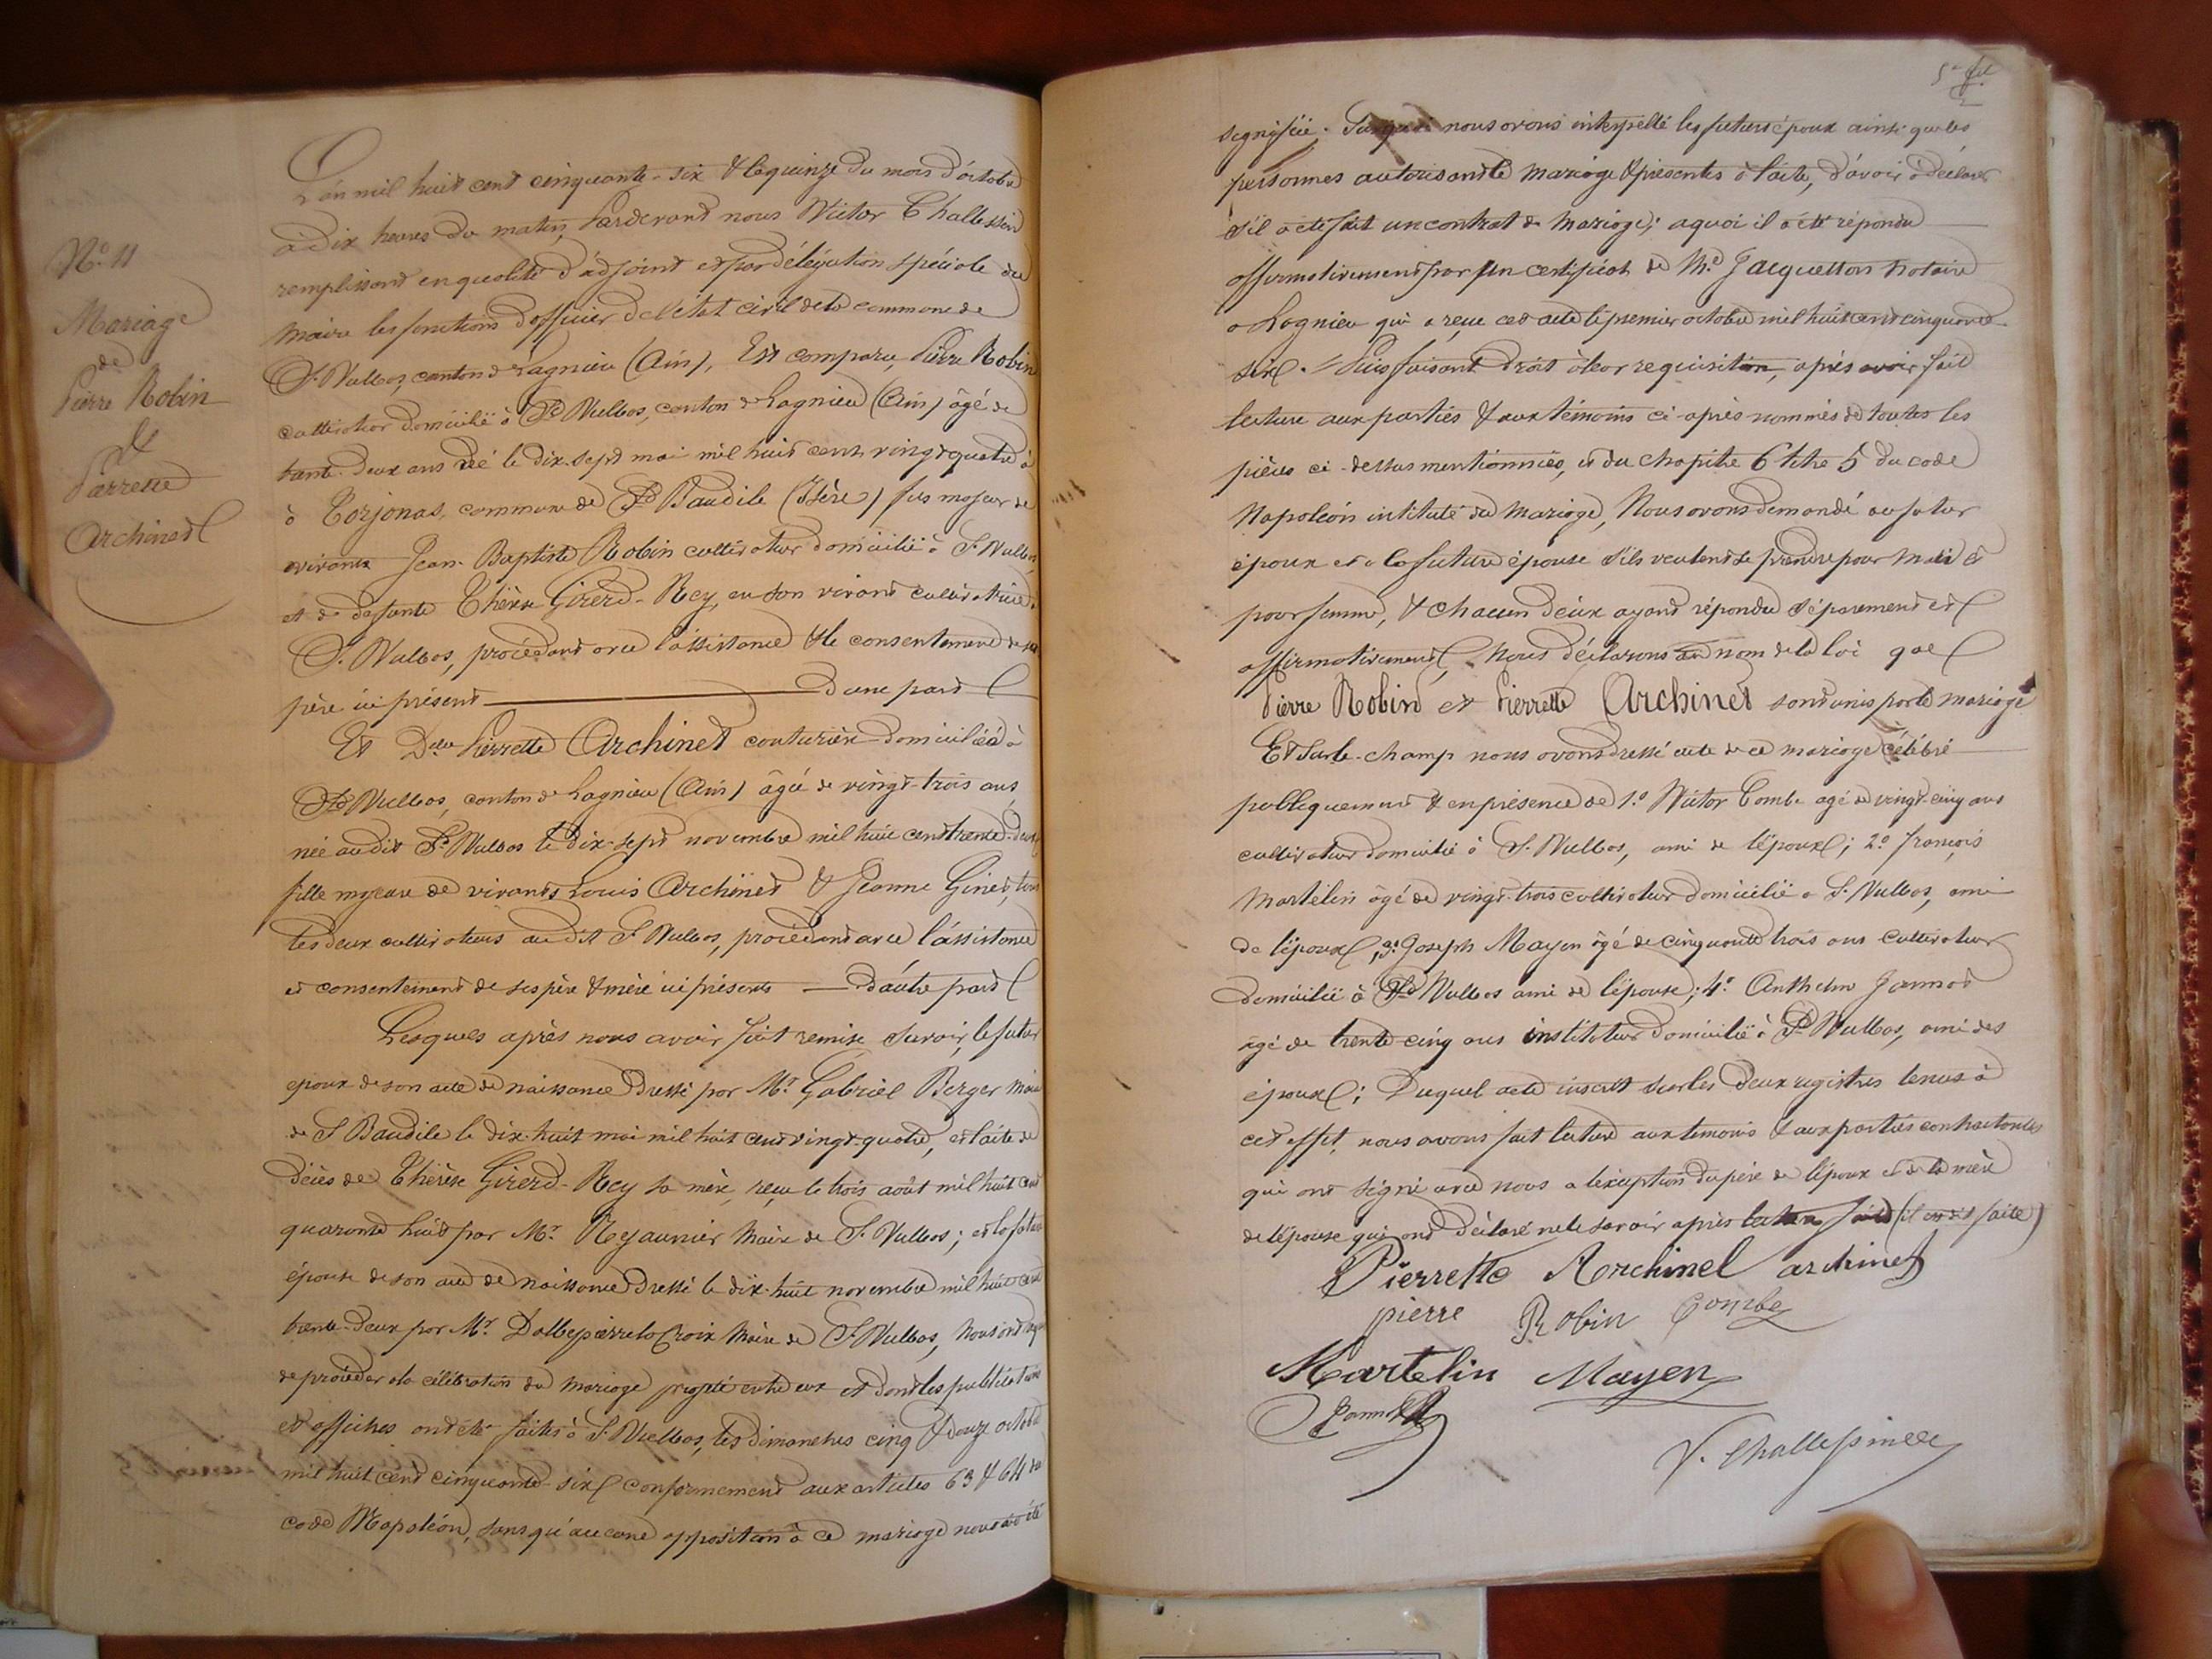 N° 11
Mariage
de
Pierre Robin
&
Pierrette
Archinet
L'an mil huit cent cinquante-six & le quinze du mois d'octobre
à dix heures du matin, Pardevant nous Victor
remplissant en qualité d'adjoint et par délégation spéciale du
maire les fonctions d'officier de l'état civil de la commune de
St Vulbas, canton de Lagnieu (Ain), Est comparu, Pierre Robin
cultivateur domicilié à St Vulbas, canton de Lagnieu (Ain) âgé de
trente-deux ans né le dix-sept mai mil huit cent vingt quatre à
à Torjonas, commune de St Baudile (Isère) fils majeur de
vivant Jean-Baptiste Robin cultivateur domicilié à St Vulbas
et de defunte Thérèse Girerd-Rey, en son vivant cultivatrice à
St Vulbas, procédant avec l'assistance & le consentement de son
père ici présent d'une part
Et Dlle Pierrette Archinet couturière domiciliée à
St Vulbas, canton de Lagnieu (Ain) âgée de vingt-trois ans,
née audit St Vulbas le dix-sept novembre mil huit cent trente-deux
fille majeure de vivants Louis Archinet & Jeanne Ginet, tous
les deux cultivateurs au dit St Vulbas, procédant avec l'assistance
et consentement de ses père & mère ici présents d'autre part
Lesquels après nous avoir fait remise Savoir, le futur
époux de son acte de naissance dressé par Mr Gabriel Berger maire
de St Baudile le dix-huit mai mil huit cent vingt-quatre, et l'acte de
décès de Thérèse Girerd-Rey sa mère, reçu le trois août mil huit cent
quarante huit par Mr Reyaunier Maire de St Vulbas; et la future
épouse de son acte de naissance dressé le dix-huit novembre mil huit cent
trente-deux par Mr Dallepierre la Croix Maire de St Vulbas, Nous ont requis
de procéder à la célébration du mariage projeté entre eux et dont les publications
et affiches ont été faites à St Vulbas, les dimanches cinq & douze octobre
mil huit cent cinquante-six conformement aux articles 63 & 64 du
code Napoléon, sans qu'aucune opposition à ce mariage nous ait été
signifiée. Sur quoi nous avons interpellé les futurs époux ainsi que les
personnes autorisant le mariage & présentes à l'acte, d'avoir à déclarer
s'il a été fait un contrat de mariage; a quoi il a été répondu
affirmativement par un certificat de Me Jacquetton notaire
a Lagnieu qui a reçu cet acte le premier octobre mil huit cent cinquante
six. Puis faisant droit à leur requisition, après avoir fait
lecture aux parties & aux témoins ci-après nommés de toutes les
pièces ci-dessus mentionnées, et du chapitre 6 titre 5 du code
Napoléon intitulé du Mariage, Nous avons demandé au futur
époux et a la future épouse s'ils veulent se prendre pour mari &
pour femme, & chacun d'eux ayant répondu séparement et
affirmativement, Nous déclarons au nom de la loi que
Pierre Robin et Pierrette Archinet sont unis par le mariage
Et Sur-le-champ nous avons dressé acte de ce mariage célébré
publiquement & en présence de 1° Victor Combe agé de vingt-cinq ans
cultivateur domicilié à St Vulbas, ami de l'époux; 2° françois
Martelin âgé de vingt-trois cultivateur domicilié à St Vulbas, ami
de l'époux, 3° Joseph Mayen âgé de cinquante trois ans cultivateur
domicilié à St Vulbas ami de l'épouse; 4° Anthelm Jannot
agé de trente-cinq ans instituteur domicilié à St Vulbas, ami des
époux; Duquel acte inscrit sur les deux registres tenus à
cet effet, nous avons fait lecture aux temoins & aux parties contractantes
qui ont signé avec nous a l'exception du père de l'époux et de la mère
de l'épouse qui ont déclaré ne le savoir après lecture faite
Pierrette Archinet archinet
pierre Robin Combe
Martelin Mayen
Jannot